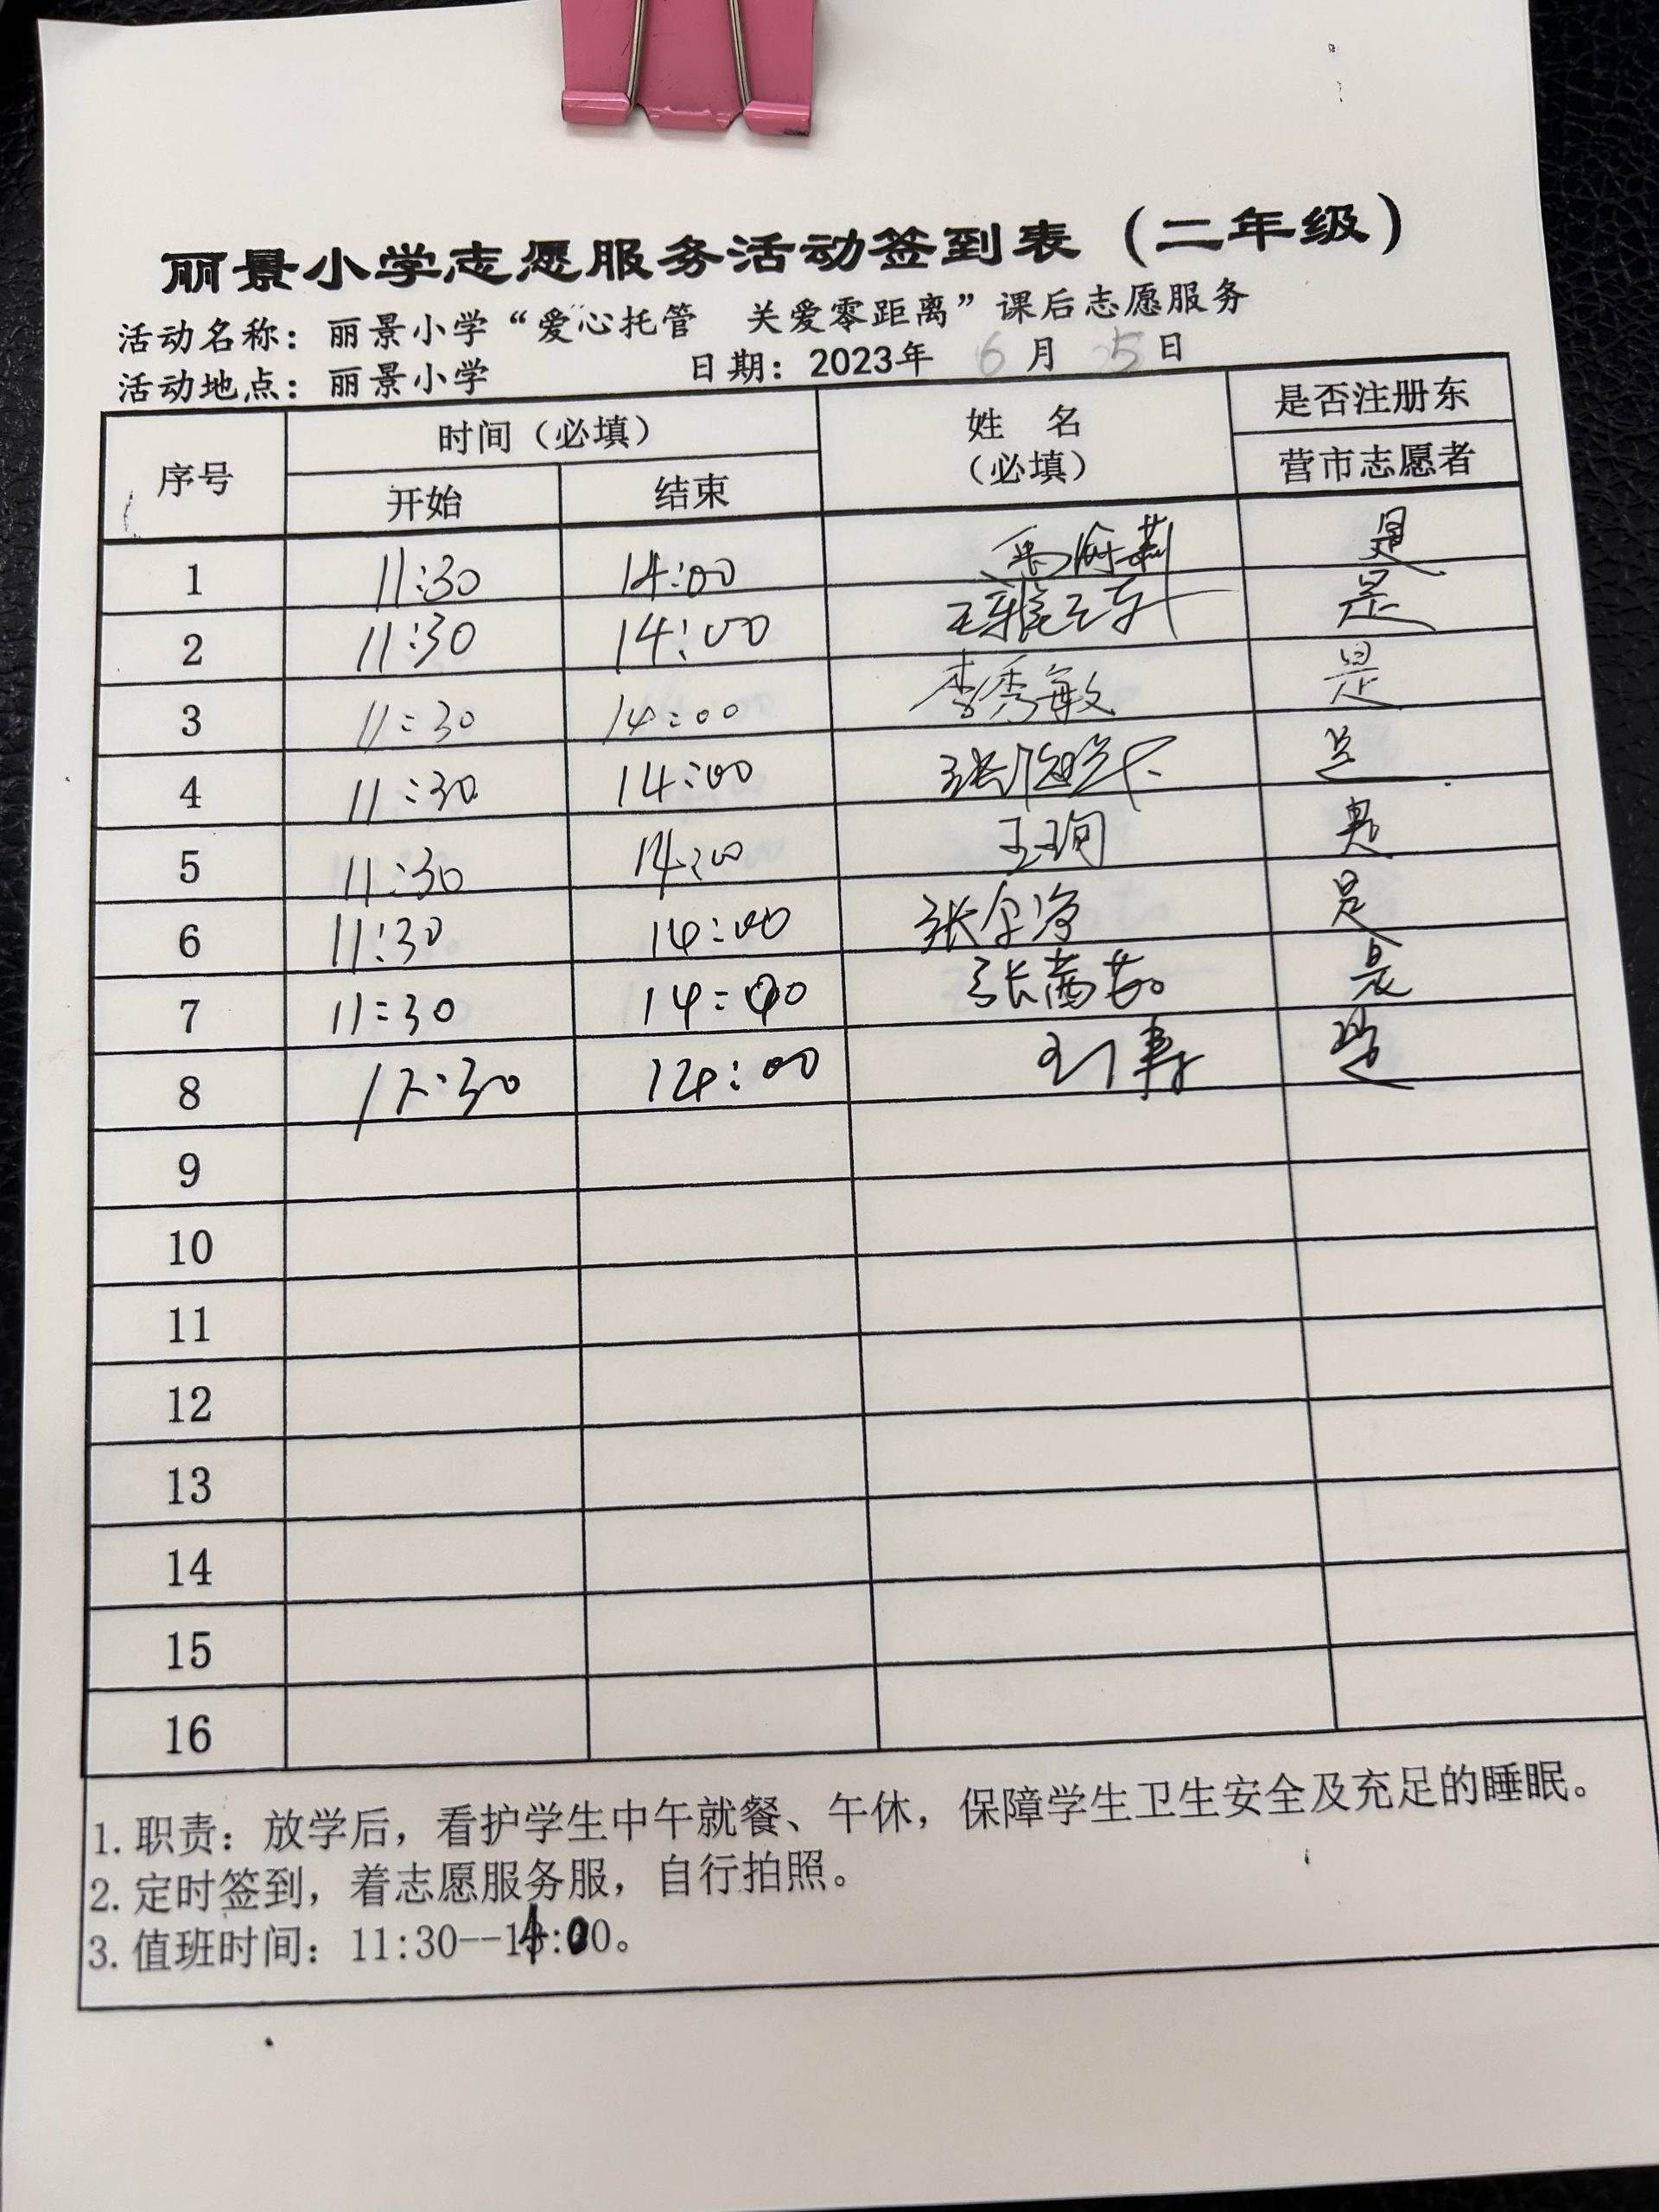 丽景小学志愿服务活动签到表（二年级）
活动名称：丽景小学“爱心托管 关爱零距离”课后志愿服务
活动地点：丽景小学 日期：2023年 6 月 25 日
序号 时间（必填） 姓 名 是否注册东
开始 结束 （必填） 营市志愿者
1 11:30 14:00 是
2 11:30 14:00 是
3 11:30 14:00 李秀敏 是
4 11:30 14:00 张 是
5 11:30 14:00 王珣 是
6 11:30 14:00 张 净 是
7 11:30 14:00 张茜茹 是
8 14:00 是
9
10
11
12
13
14
15
16
1.职责：放学后，看护学生中午就餐、午休，保障学生卫生安全及充足的睡眠。
2.定时签到，着志愿服务服，自行拍照。
3.值班时间：11:30--14:00。